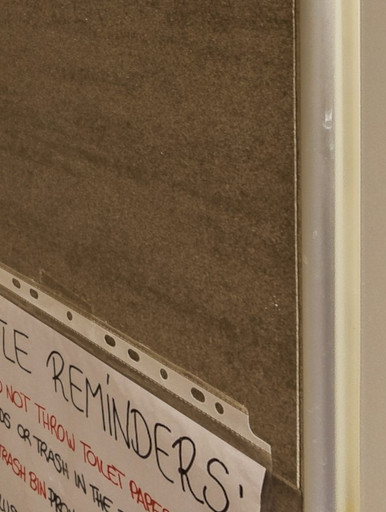 REMINDERS:
NOT THROW TOILET PAPER
OR TRASH IN THE
TRASH BIN